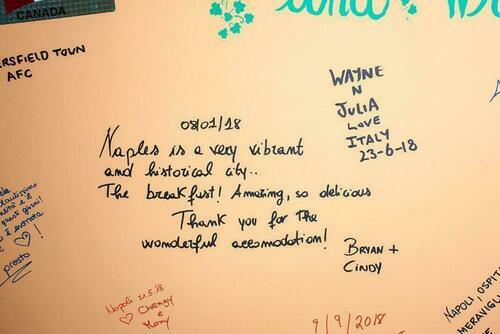 CANADA
ERSFIELD TOWN
AFC
WAYNE
N
JULIA
LOVE
ITALY
23-6-18
08/01/18
Naples is a very vibrant
and historical city..
The breakfast! Amazing, so delicious
Thank you for the
wonderful accomodation!
BRYAN +
CINDY
presto
Napoli 21.5.18
e
9/9/2018
NAPOLI OSPIT
MERAVIGL